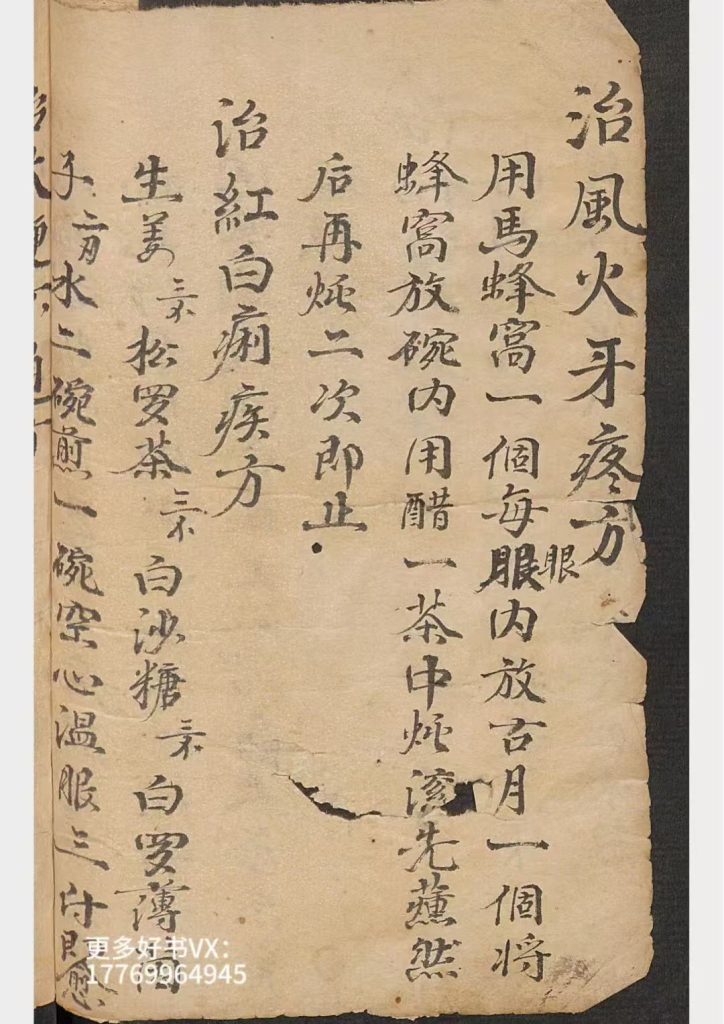 治風火牙疼方
用馬蜂窩一個每服眼内放古月一個将
蜂窩放碗内用醋一茶中炖滚先薰然
后再炖二次即止
治紅白痢疾方
生姜三不松罗茶三不白沙糖三不白罗薄
子二刃水二碗煎一碗空心温服三付即愈
更多好书VX：
17769964945